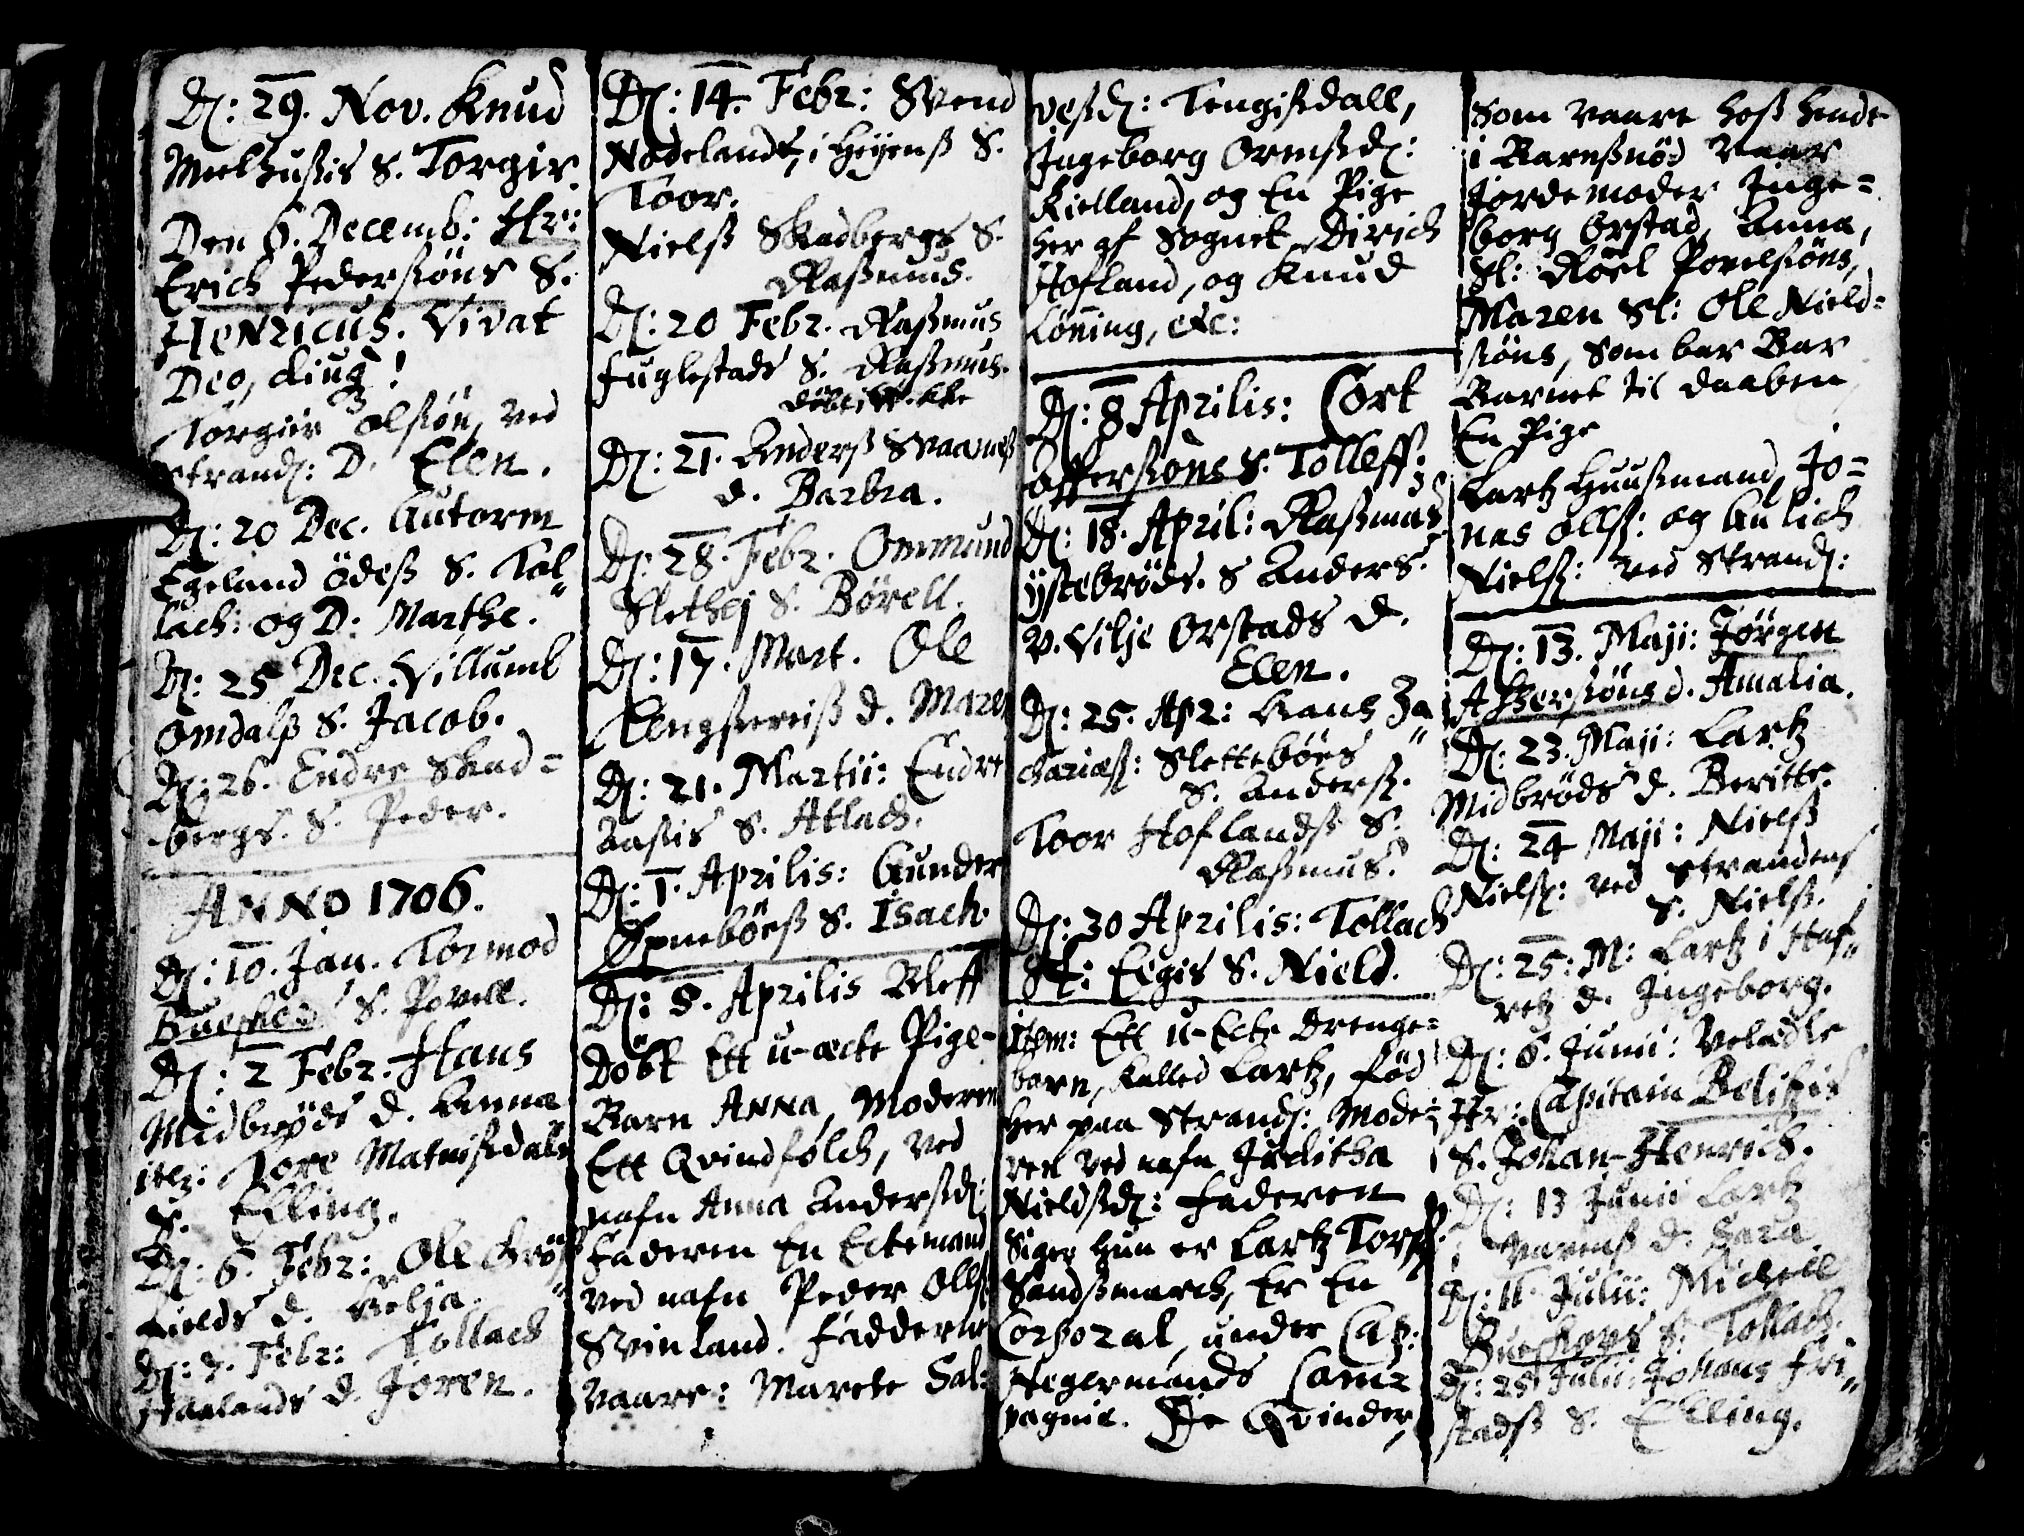 D: 29. Nov. Knud
Meelhussis S. Torgir.
Den 6. Decemb: Hr:
Erich Pedersøns S.
HENRICUS. Vivat
Deo, diug!
Torgier Olsøn, ved
strand: D. Elen.
D: 20 Dec. Gutorm
Egeland ödes S. Tol"
lach: og D: Marthe.
D: 25 Dec. Villumb
Omdals S. Jacob.
D: 26. Endre Skad=
bergs. S. Peder.
ANNO 1706.
D: 10. Jan. Tormod
S. Povell.
D: 2 Febr. Hans
Midbrøds d. Anna
item: Tore
S. Elling.
D: 6. Febr: Ole
d. Velja.
D: 7. Febr: Tollach
Haalands d. Joren.
D: 14. Febr: Svend
Nodelands, i S.
Toor.
Niels Skadbergs S.
Rasmus.
D: 20 Febr. Rasmus
Fuglestads S. Rasmus.
D: 21. Anders Svaanes
d. Barbra.
D: 28. Febr. Ommund
Slethej S. Börell.
D: 17. Mart. Ole
d. Maren
D: 21. Martii: Endre
Aasis S. Atlach.
D: 1. Aprilis: Gunder
S. Isach.
D: 8. Aprilis Bleff
Döbt Ett u-ecte Pige-
Barn ANNA, Moderen
Ett Qvindfolch, ved
nafn Anna Andersd:
Faderen En Ectemand
ved nafn Peder Olls:
Svinland. Fadderne
vaare: Marete Sal:
vesd: Tengisdall,
Ingeborg Ormsd:
Kielland, og En Pige
her af Sognet, Dirich
Hofland, og Knud
Löning, etc:
D: 8 Aprilis: Cort
S. Tolleff.
D: 18. April: Rasmus
ystebröds. S Anders.
V. Vilje Orstads d.
Elen.
D: 25. Apr: Hans Za"
charias: Sletteböes
S. Anders.
Toor Hoflands S.
Rasmus.
D: 30 Aprilis: Tollach
St: Eegis S. Nield.
Item: Ett u-Ecte Drenge=
barn, kalled Lartz, fød
her paa Strand: Mode=
ren ved nafn Juditha
Nieldsd: Faderen
Siger hun er Lartz Tors:
Sandsmarch, Er En
Corporal, under Cap:
Hegermands Com=
pagnie. De Qvinder,
Som vaare hoss hende
i Barnsnød vaar
Jordemoder Inge=
borg Orstad, Anna,
Sl: Roel Povelsöns,
Maren Sl: Ole Nield=
söns, Som bar Bar
Barnet til daaben
En Pige
Lartz Huusmand, Jo=
nas Olls: og Aulich
Niels: ved Strand:
D: 13. Maji: Jørgen
d. Amalia.
D: 23. Maji: Lartz
Midbrøds d. Beritte.
D: 24 Maji: Niels
Niels: ved Stranden
S. Niels.
D: 25: M: Lartz i
d. Ingeborg.
D: 6. Junii: Velædle
Hr: Capitain
S. Johan-Henrich.
D: 13 Junii Lartz
d. Sara
D: 11 Julii: Michell
S. Tollach.
D: 25 Julii: Johans Fri"
stads S. Elling.